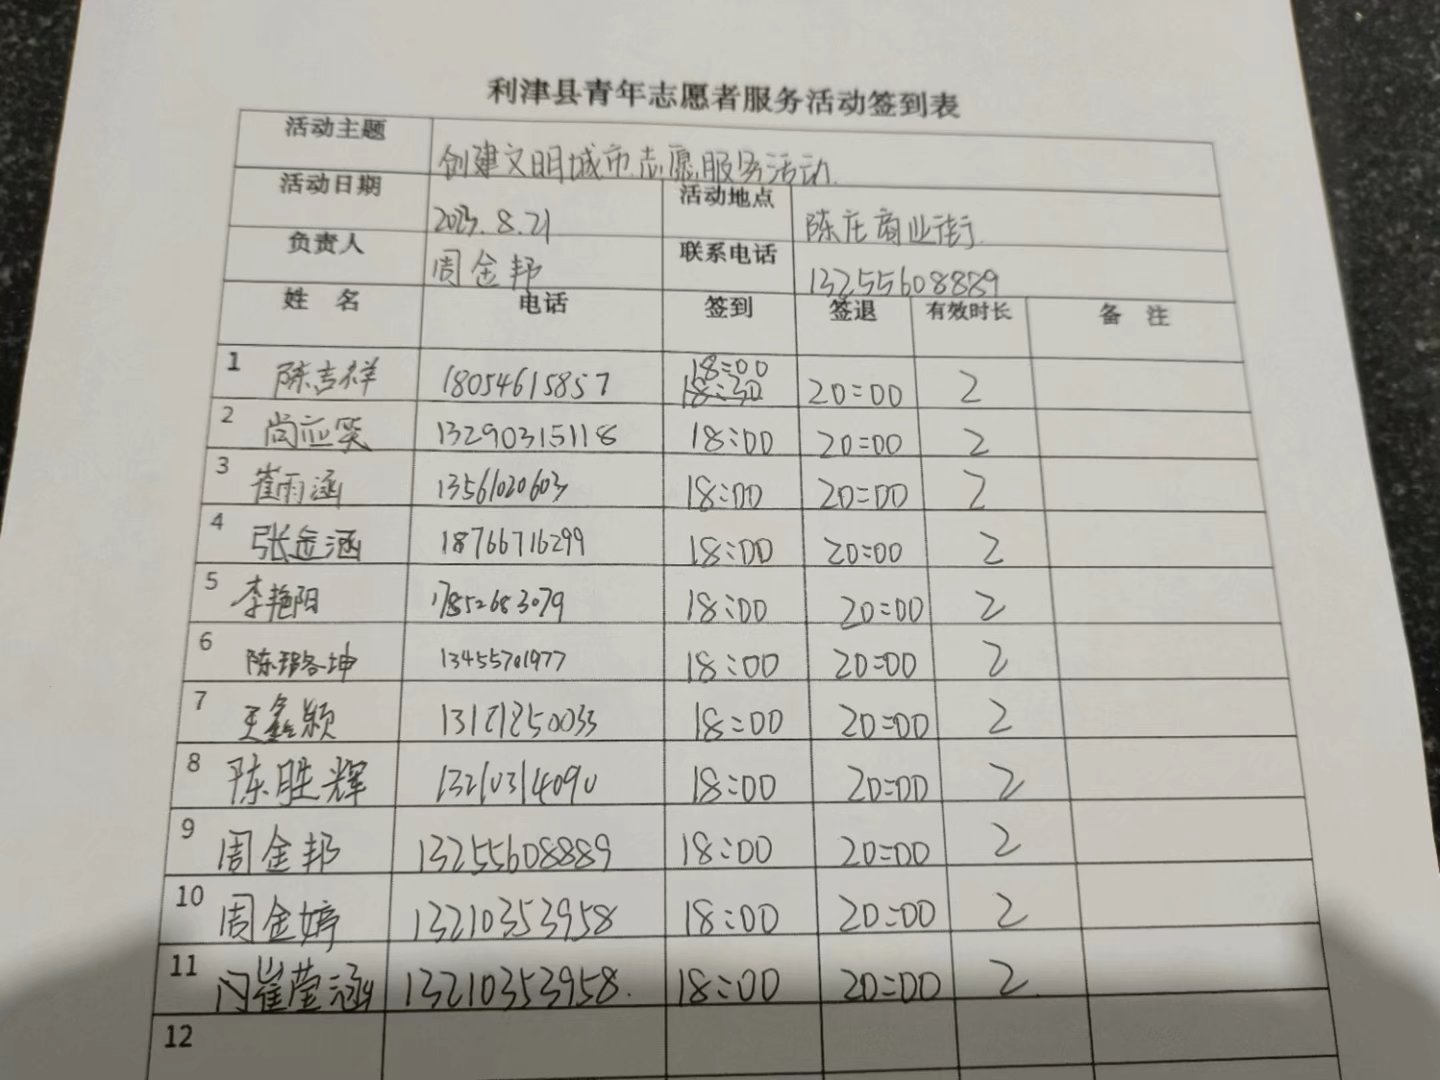 利津县青年志愿者服务活动签到表
活动主题 创建文明城市志愿服务活动.
活动日期 2023.8.21 活动地点 陈庄商业街.
负责人 周金邦 联系电话 13255608889
姓 名 电话 签到 签退 有效时长 备 注
1 陈吉祥 18054615857 18:00 18:30 20:00 2
2 尚应笑 13290315118 18:00 20:00 2
3 崔雨涵 13561020603 18:00 20:00 2
4 张金涵 18766716299 18:00 20:00 2
5 李艳阳 17852683079 18:00 20:00 2
6 陈璐坤 13455701977 18:00 20:00 2
7 王鑫颖 18:00 20:00 2
8 陈胜辉 13210314090 18:00 20:00 2
9 周金邦 13255608889 18:00 20:00 2
10 周金婷 13210353958 18:00 20:00 2
11 崔莹涵 13210353958. 18:00 20:00 2
12